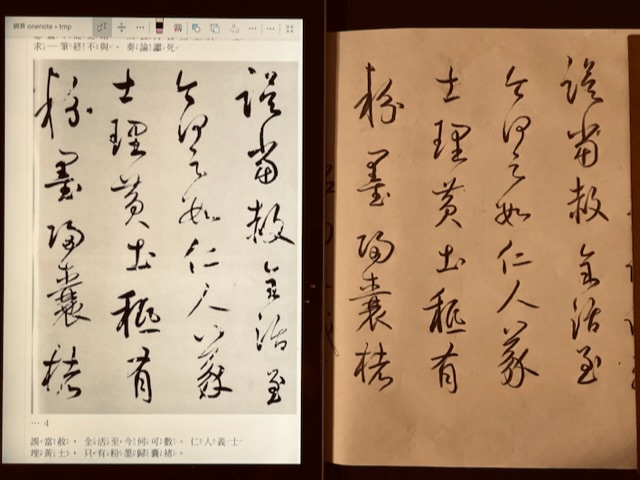 網頁 onenote • tmp
求一筆終不與。奏論讞死
誤當赦全活至
今何可數仁人義
士埋黃土秪有
粉墨歸囊楮
… 4
誤當赦，全活至今何可數。仁人義士
埋黃土，只有粉墨歸囊褚。
誤當赦全活至
今何可數仁人義
士埋黃土秪有
粉墨歸囊楮